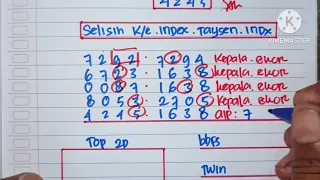 4 2 4 5
KINEMASTER
Selisih K/e. index. taysen. indx
7 2 9 2 . 7 2 9 4 kepala. ekor
6 7 2 3 . 1 6 3 8 kepala. ekor
0 0 8 7 . 1 6 3 8 kepala. ekor
8 0 5 3 . 2 7 0 5 kepala. ekor
4 2 4 5 . 1 6 3 8 alp : 7
TOP 2D
bbfs
TWIN